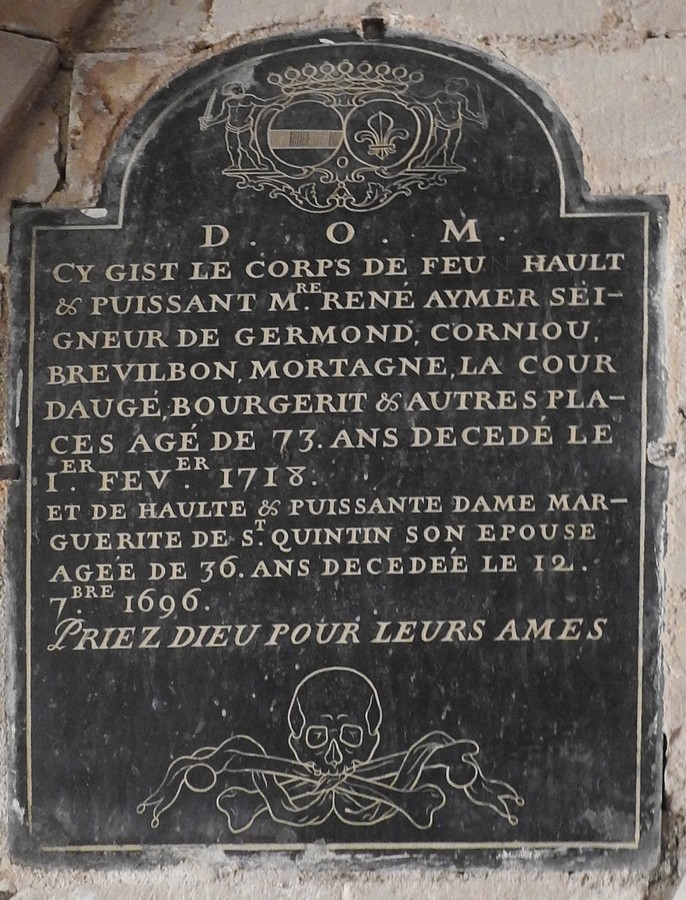 D. O. M.
CY GIST LE CORPS DE FEU HAULT
& PUISSANT M.RE RENÉ AYMER SEI-
GNEUR DE GERMOND, CORNIOU,
BREVILBON, MORTAGNE, LA COUR
DAUGÉ, BOURGERIT & AUTRES PLA-
CES AGÉ DE 73. ANS DECEDÉ LE
1.ER FEV.ER 1718.
ET DE HAULTE & PUISSANTE DAME MAR-
GUERITE DE S.T QUINTIN SON EPOUSE
AGEÉ DE 36. ANS DECEDEÉ LE 12.
7.BRE 1696.
PRIEZ DIEU POUR LEURS AMES